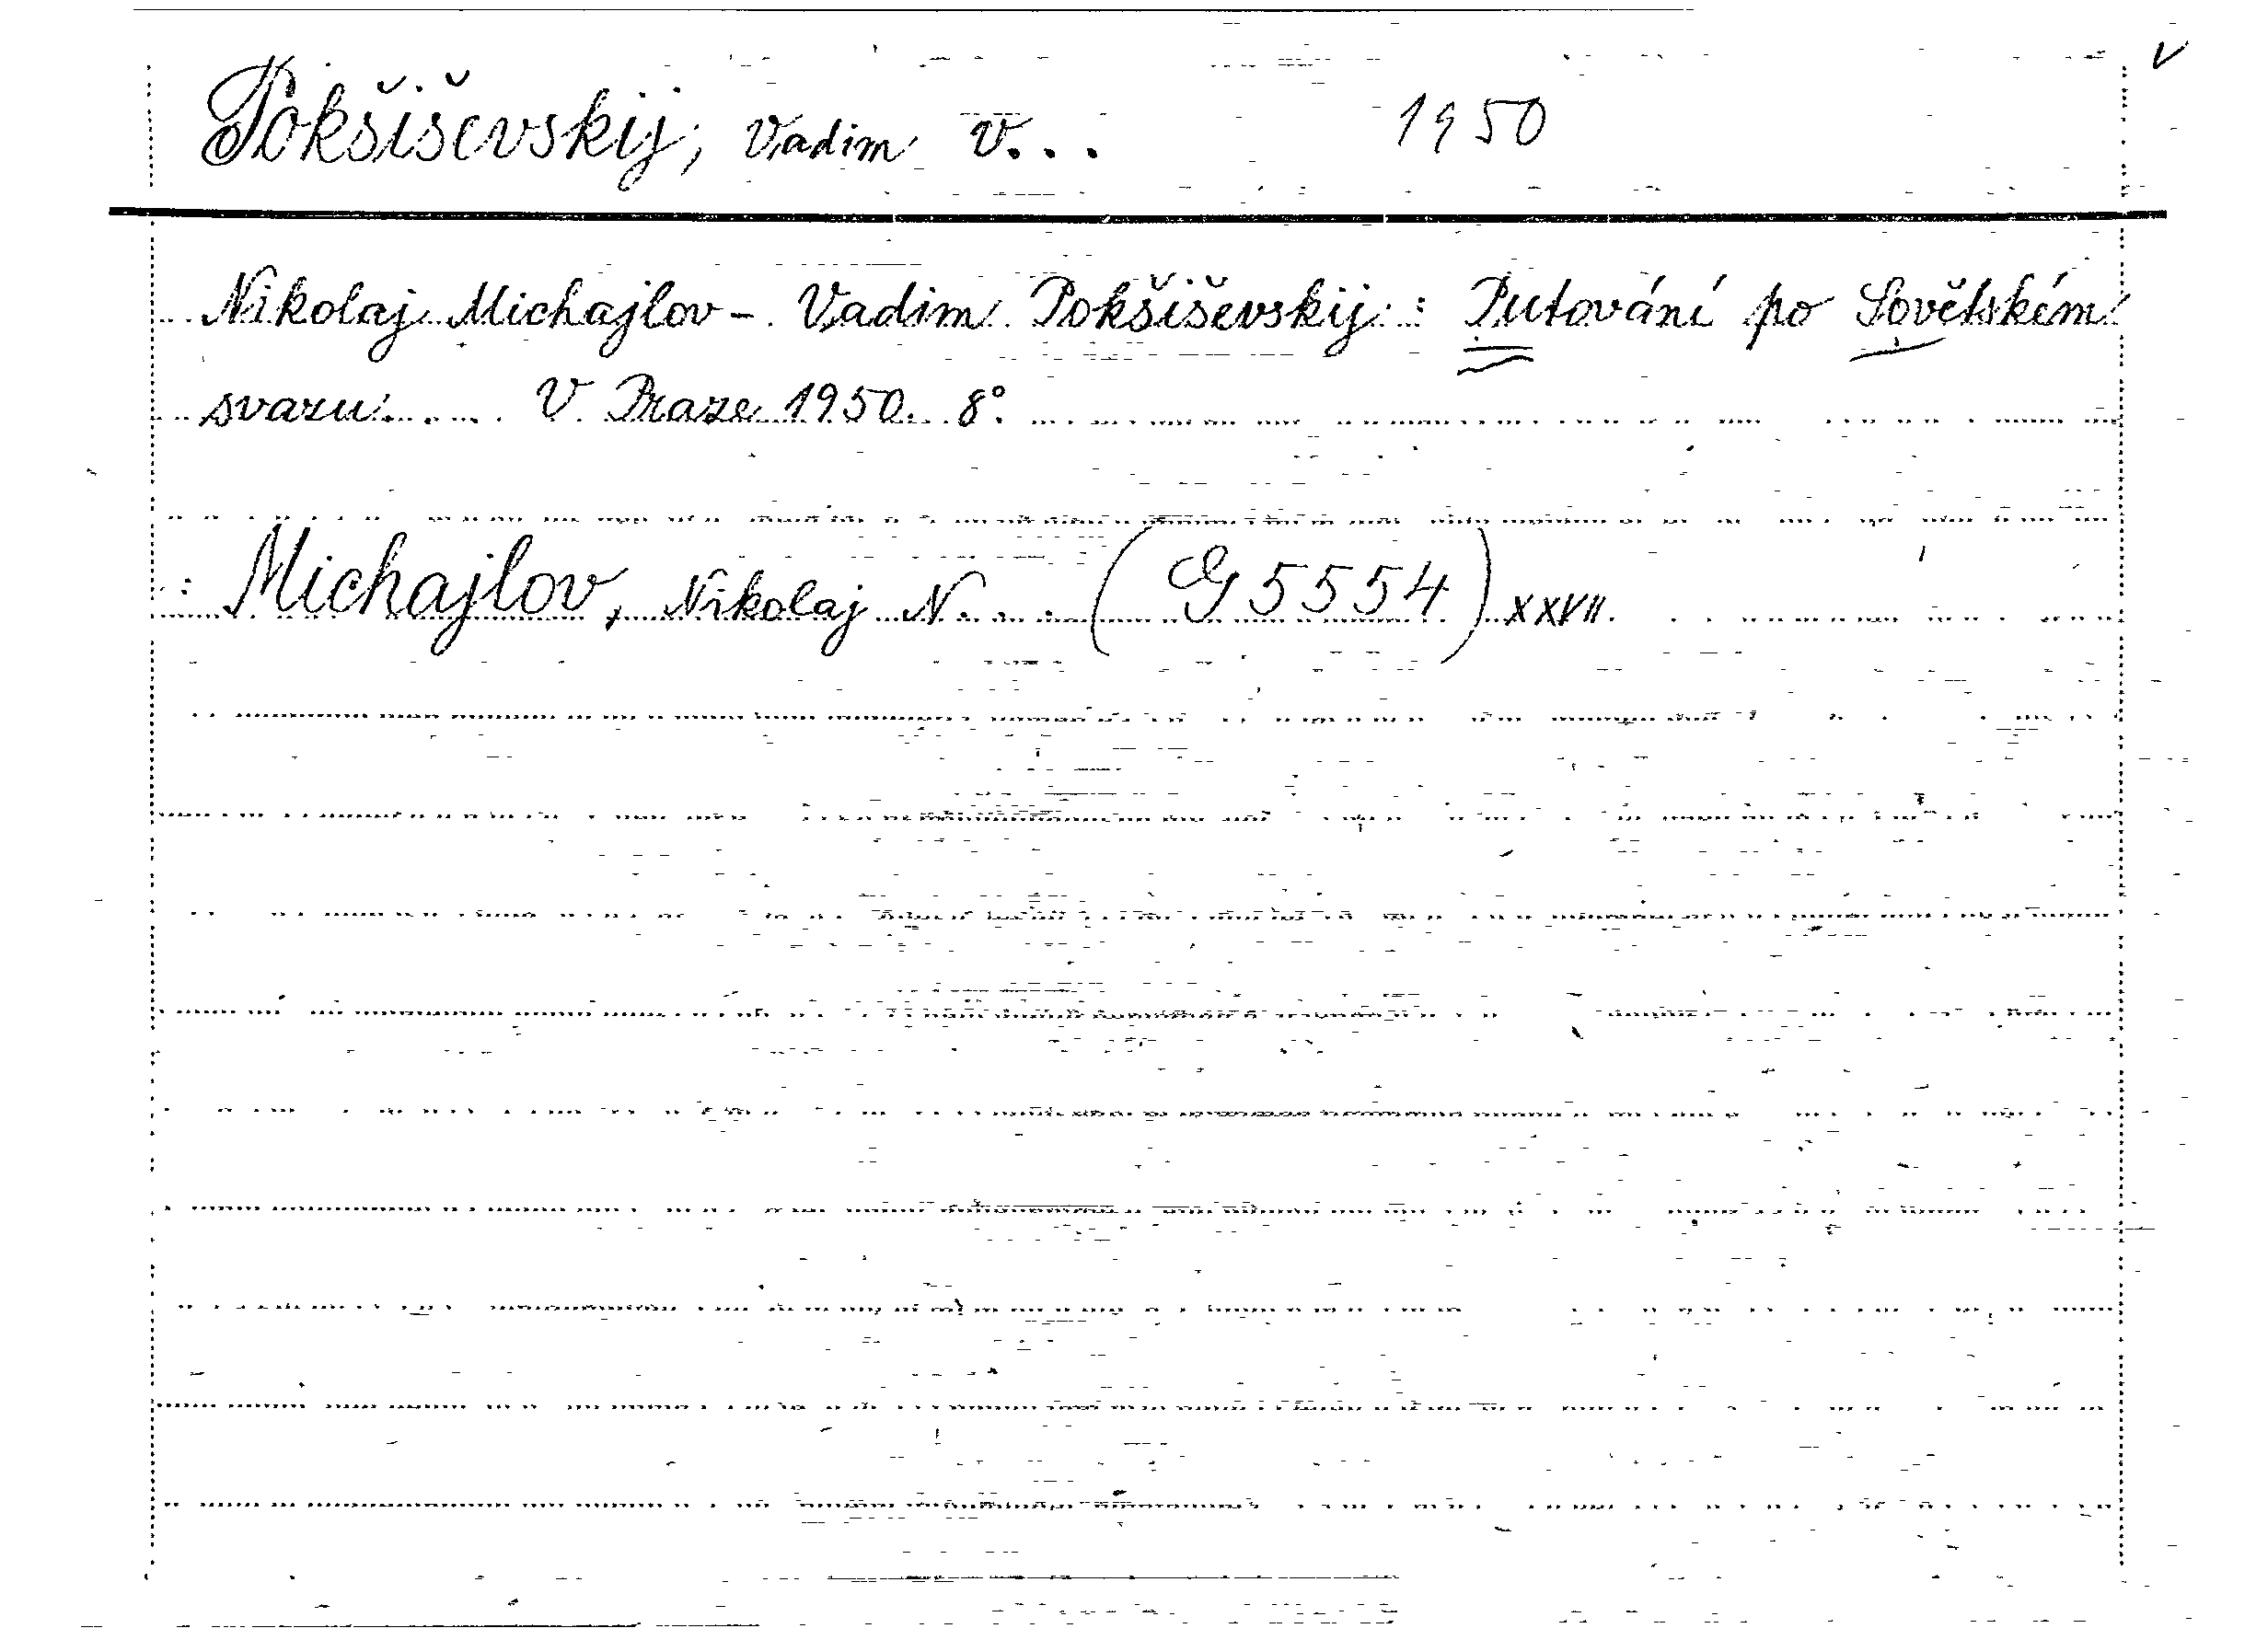 Pokšiševskij, Vadim V... 1950 v
Nikolaj Michajlov - Vadim Pokšiševskij : Putování po Sovětském
svazu. . . . V Praze 1950. 8°.
: Michajlov, Nikolaj N. . . (G 5554) XXVII.